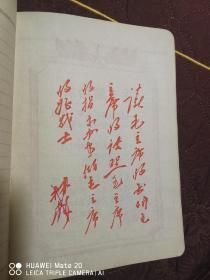 读毛主席的书听毛
主席的话照毛主席
的指示办事做毛主席
的好战士
林彪
HUAWEI Mate 20
LEICA TRIPLE CAMERA | AI